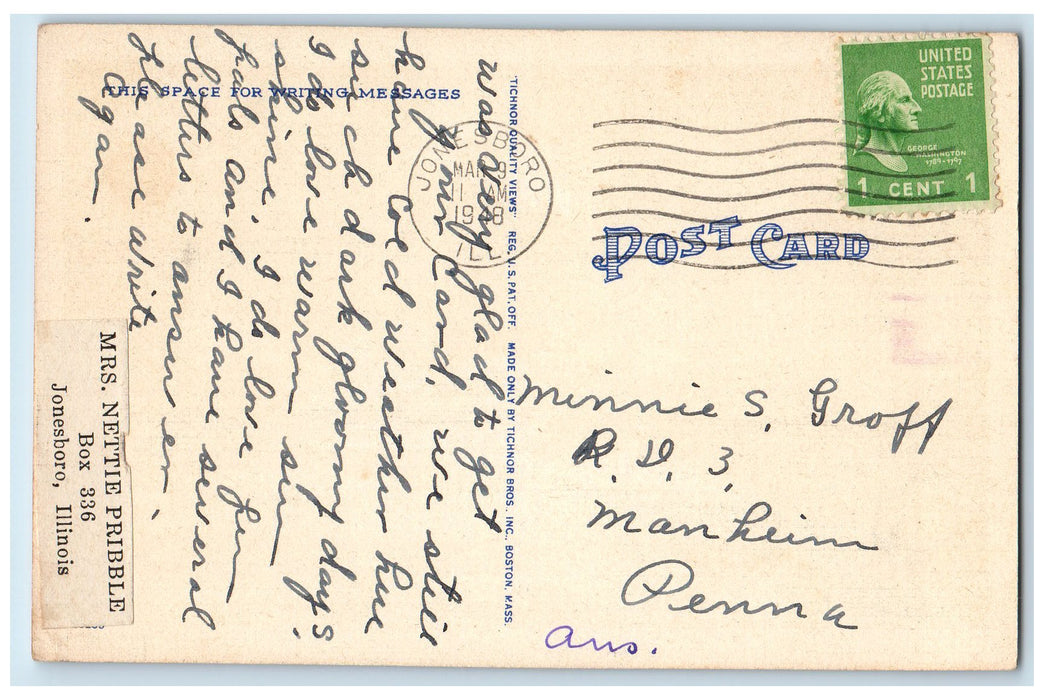 THIS SPACE FOR WRITING MESSAGES
was very glad to get
your Card, we still
have Coed weather here
such dark gloomy days.
I do love warm sun
shine, I do love pen
pals and I have several
letters to answer,
Please write
again.
MRS. NETTIE PRIBBLE
Box 336
Jonesboro, Illinois
"TICHNOR QUALITY VIEWS" REG. U. S. PAT. OFF. MADE ONLY BY TICHNOR BROS. INC., BOSTON, MASS.
JONESBORO
MAR 9
11 AM
1948
ILL
UNITED
STATES
POSTAGE
GEORGE
WASHINGTON
1789-1797
1 CENT 1
POST CARD
Minnie S. Groff
R. D. 3,
Manheim
Penna
Ans.